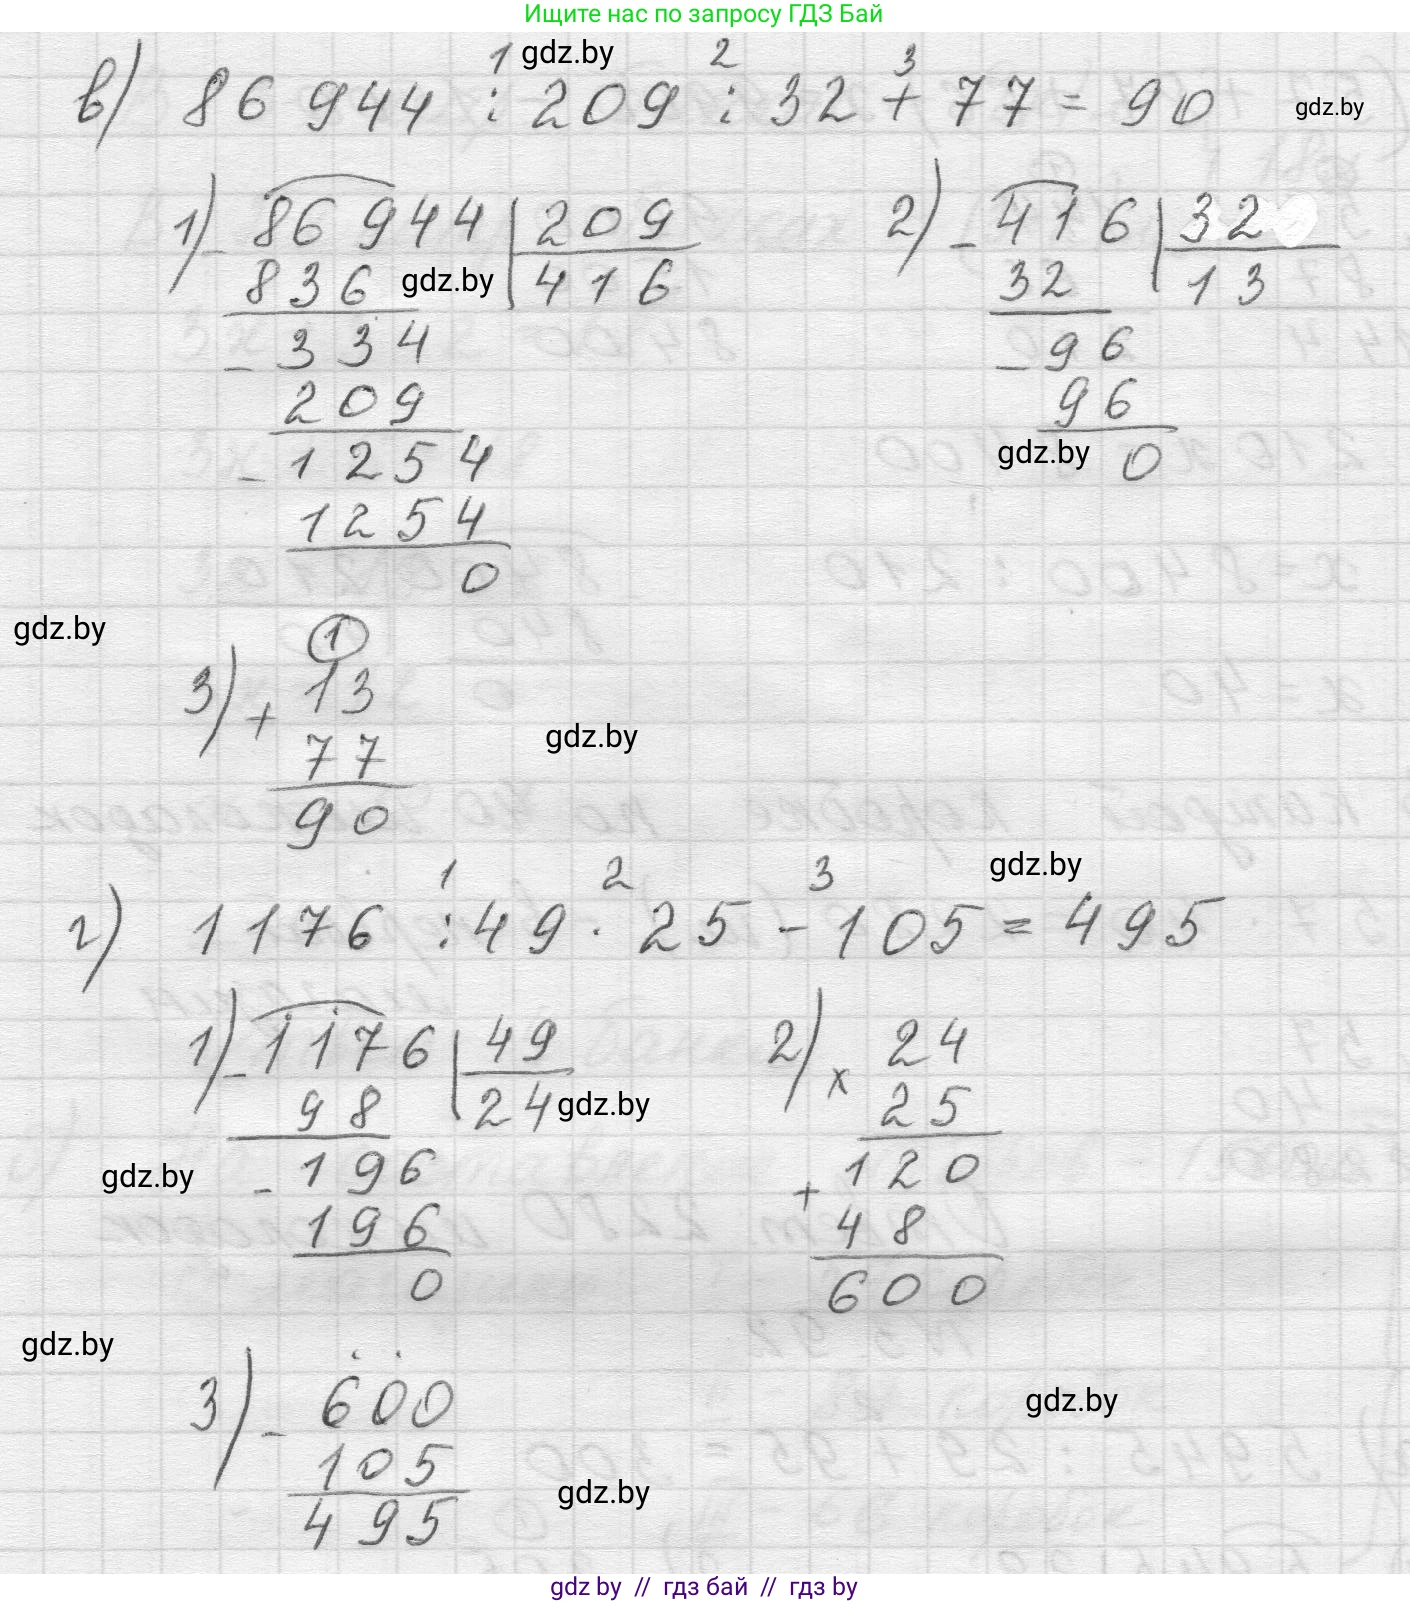 Ищите нас по запросу ГДЗ Бай
1 gdz.by 2 3
в) 86 944 : 209 : 32 + 77 = 90 gdz.by
1) - 86 944 | 209
836 gdz.by 416
- 334
209
- 1254
1254
0
2) - 416 | 32
32 13
- 96
96
gdz.by 0
gdz.by
1
3) + 13
77
90
gdz.by
gdz.by
1 2 3
г) 1176 : 49 · 25 - 105 = 495
1) - 1176 | 49
98 24 gdz.by
gdz.by - 196
196
0
2) x 24
25
+ 120
48
600
gdz.by
3) - 600
105
495
gdz.by
gdz.by
gdz by // гдз бай // гдз by